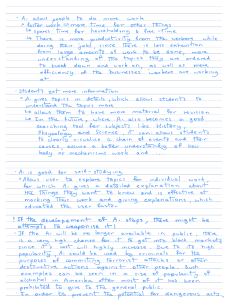 • A. allow people to do more work
• faster work → more time for other things
↳ spare time for householding & free time
↳ There is more productivity from the workers while
doing their job, since there is less exhaustion
from large amounts of work to be done, more
understanding of the topics they are ordered
to break down and work on, as well as more
efficiency of the businesses workers are working
at
• Students get more information
• A. gives topics in details, which allow students to
understand the topics more
↳ allow them to have more material for revision
↳ In the future, when A. also becomes a good
teaching tool for subjects like History,
Physiology and Science, it can allow students
to clearly visualise a chain of events or their
causes, assure a better understanding of how
body or mechanisms work and
• A. is good for self-studying
• Allows user to explore topics for individual work,
for which A. gives a detailed explanation about
the things they want to know and is effective at
marking their work and giving explanations, which
advantages the user gains
! If the development of A. stops, there might be
attempts to weaponise it!
• If the A. will be no longer available in public, there
is a very high chance for it to get into black markets
since its cost will highly increase. Due to its high
popularity, A. could be used by criminals for the
purposes of committing terrorist attacks or other
destructive actions against other people. Such
examples can be seen in a rise of popularity of
alcohol in America after most of it has been
prohibited to give to the general public.
In order to prevent the potential for dangerous acts,